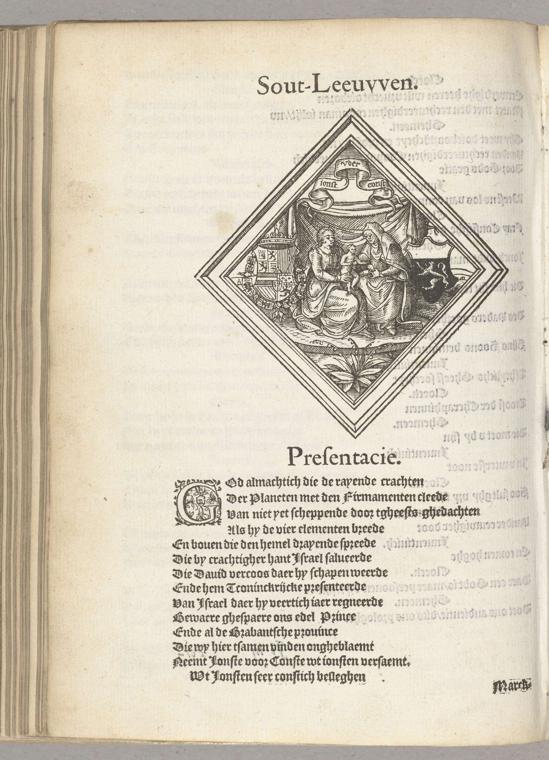 Sout-Leeuvven.
vder
ionst
const
Presentacie.
God almachtich die de rayende crachten
Der Planeten met den Firmamenten cleede
Van niet yet scheppende door tgheests ghedachten
Als hy de vier elementen breede
En bouen die den hemel drayende spreede
Die by crachtigher hant Israel salueerde
Die Dauid vercoos daer hy schapen weerde
Ende hem Tconinckrijcke presenteerde
Van Israel daer hy veertich iaer regneerde
Bewarre ghespaerre ons edel Prince
Ende al de Brabantsche prouince
Die wy hier tsamen vinden ongheblaemt
Neemt Jonste voor Conste wt ionsten versaemt.
Wt Jonsten seer constich besleghen
March-